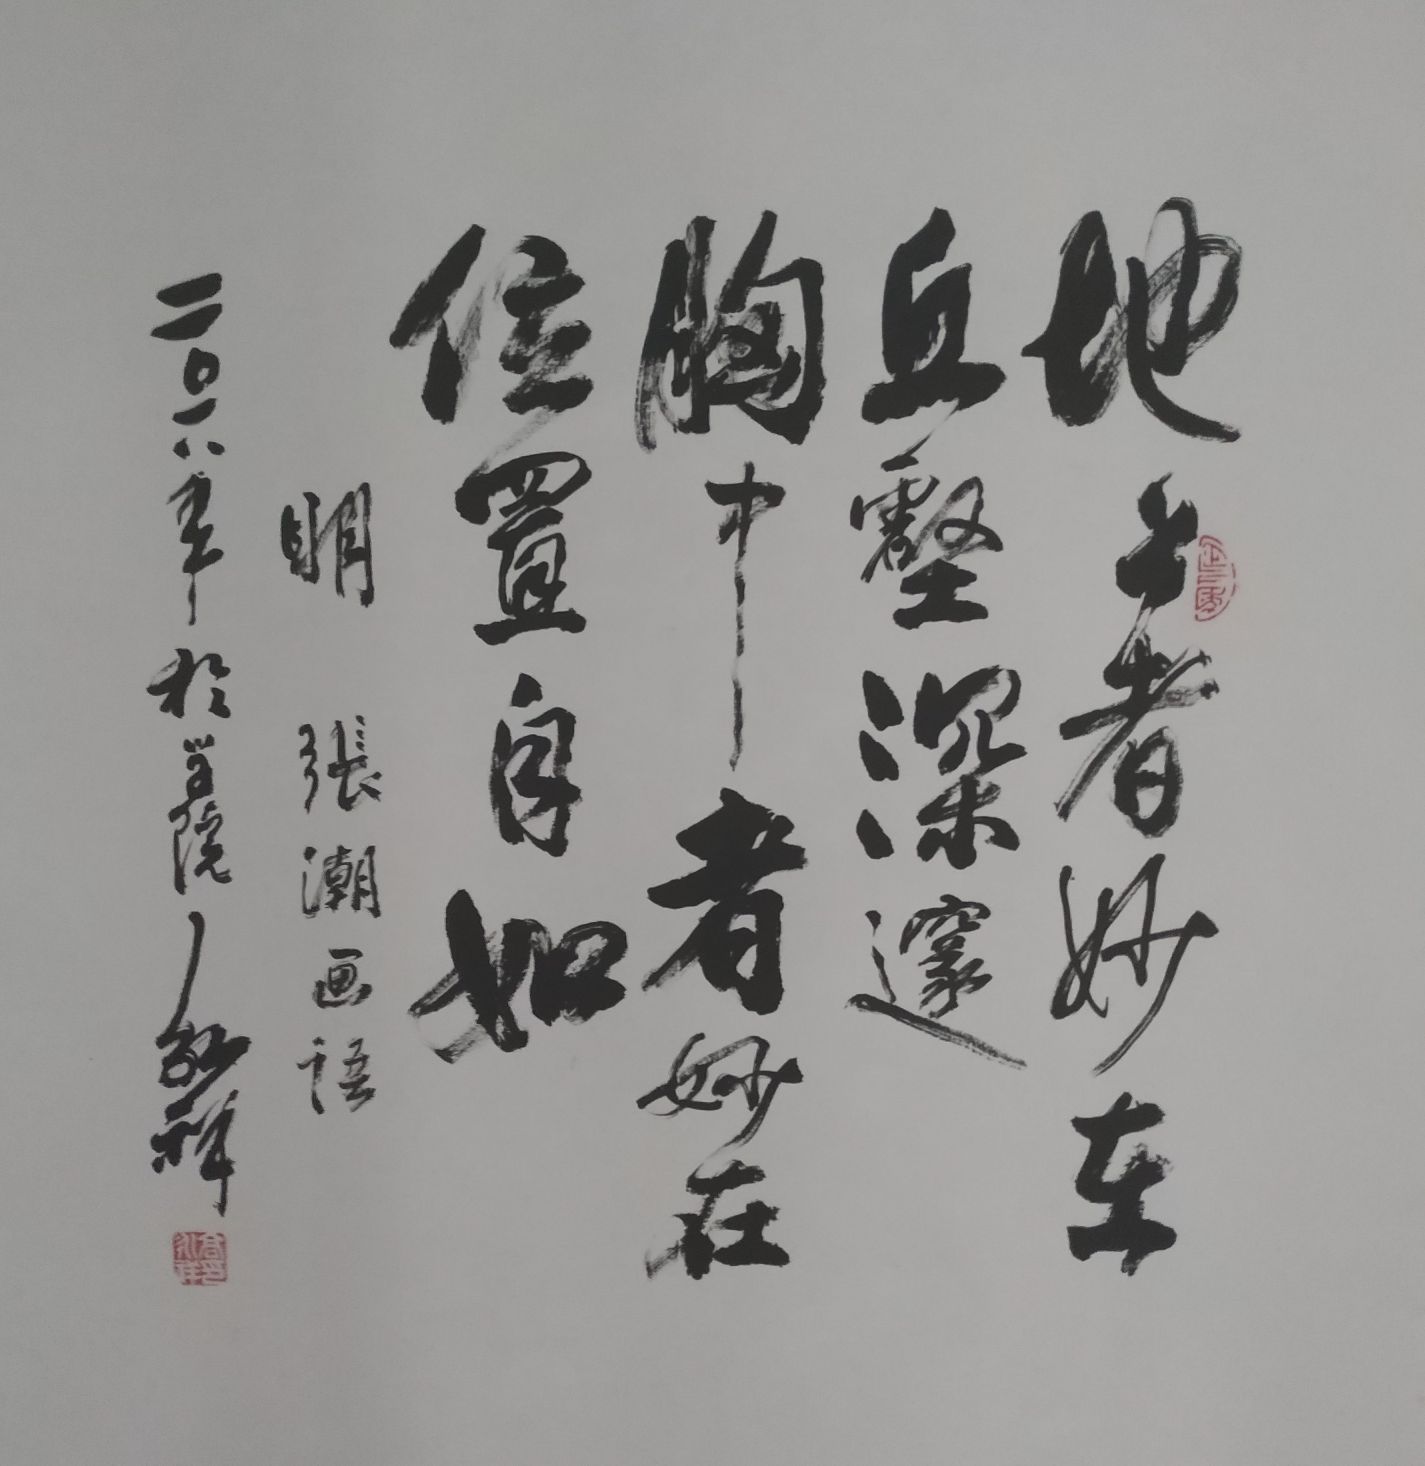 地上者妙在
丘壑深邃
胸中者妙在
位置自如
明 張潮画語
二〇一八年於京院永祥